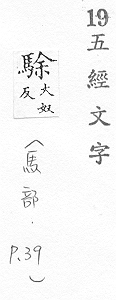 19 五經文字
駼大奴反
(馬部.P.39)